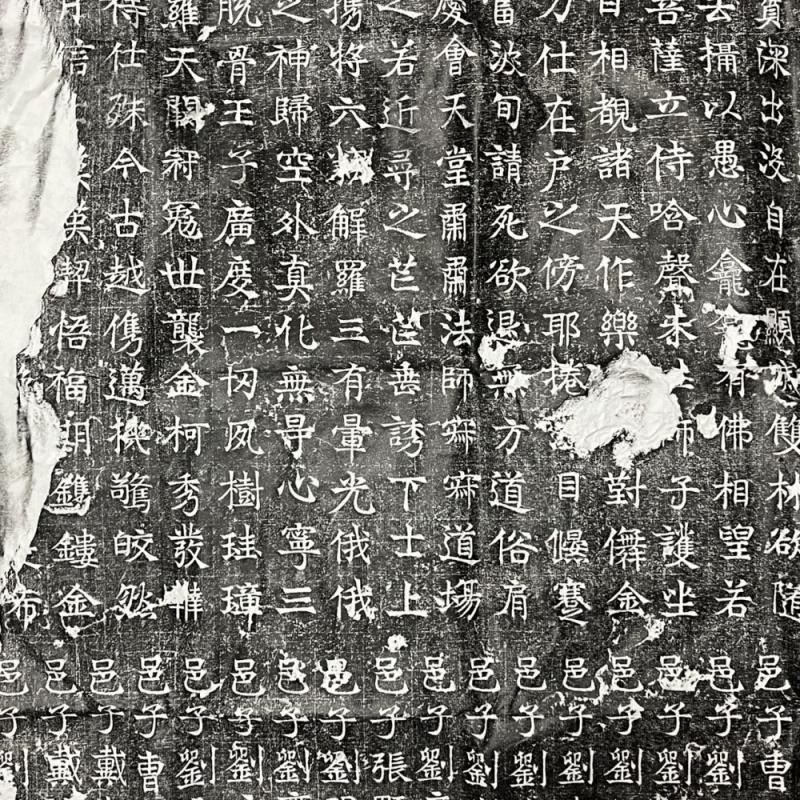 深出没自在顯雙林欲随
去攝以愚心龕有佛相望若
菩薩立侍唅聲未師子護坐
目相覩諸天作樂對儛金
力仕在户之傍耶捲目蹇
當波旬請死欲退無方道俗肩
慶會天堂肅肅法師寐寐道場
之若近尋之芒芒垂誘下士上
揚將六解羅三有暈光俄俄
之神歸空外真化無尋心寧三
脱骨王子廣度一切夙樹珪璋
羅天開冠世襲金柯秀發
待仕殊今古越儁邁機警皎然
月信士漢契悟福朋鐫鏤金
布
邑子曹
邑子劉
邑子劉
邑子劉
邑子劉
邑子劉
邑子劉
邑子劉
邑子張
邑子劉
邑子劉
邑子劉
邑子劉
邑子曹
邑子戴
邑子戴
邑子劉